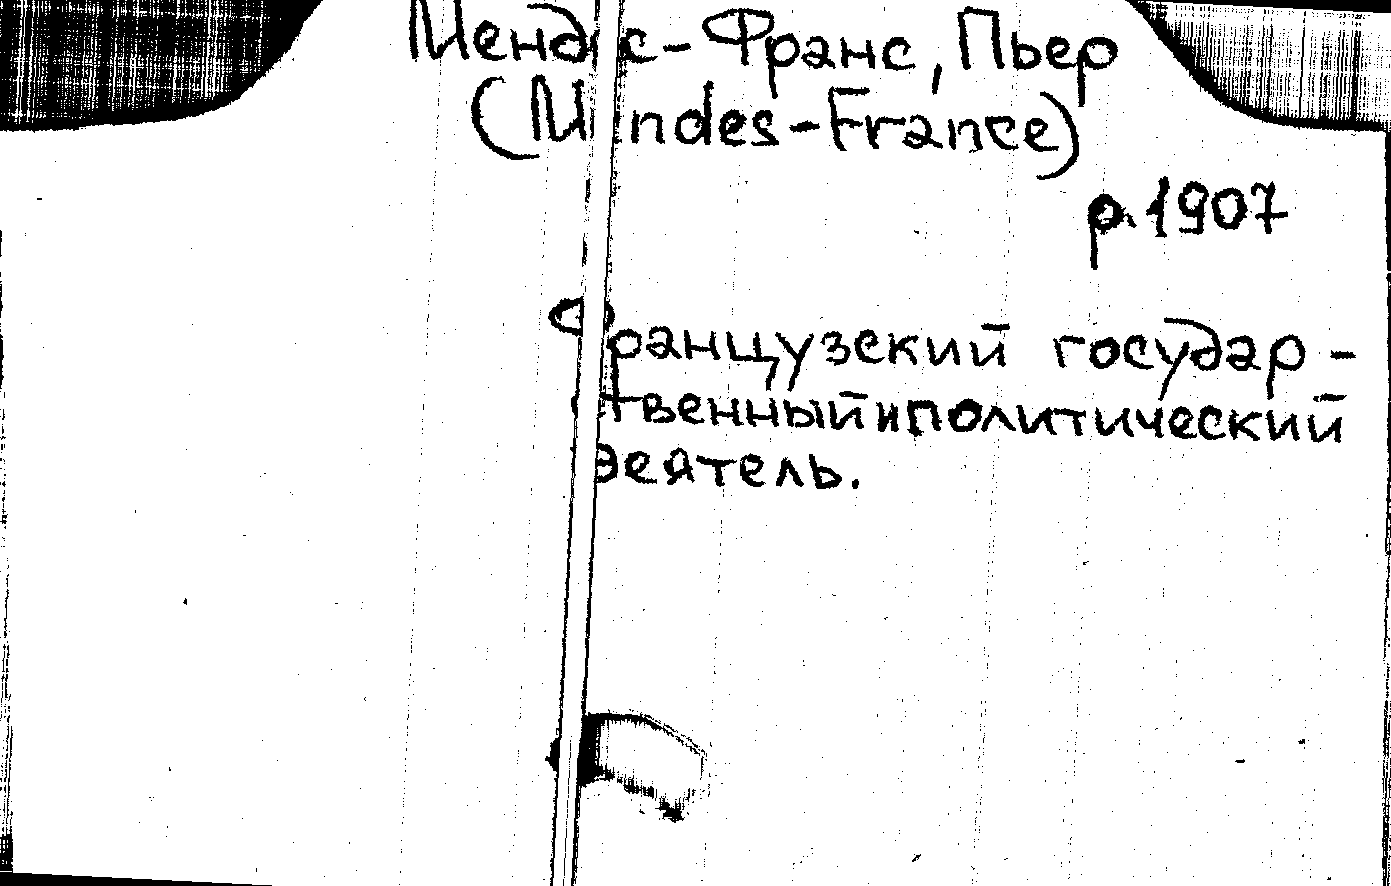 Мендес-Франс, Пьер
(Mendes-France)
р. 1907
Французский государ-
твенный и политический
деятель.